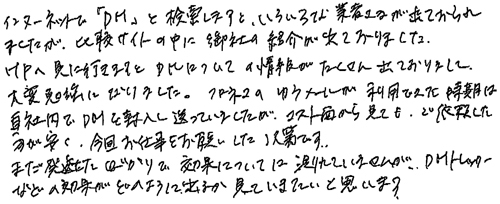 インターネットで「DM」と検索しますと、いろいろな業者さんが出ておられ
ましたが、比較サイトの中に御社の紹介が出ておりました。
HPへ見に行きますとDMについての情報がたくさん出ておりまして、
大変勉強になりました。クロネコのゆうメールが利用できた時期は
自社内でDMを封入し送っていましたが、コスト面から見ても、ご依頼した
方が安く、今回お仕事をお願いした次第です。
まだ発送したばかりで効果については測れていませんが、DMトレッカー
などの効果がどのように出るか見ていきたいと思います